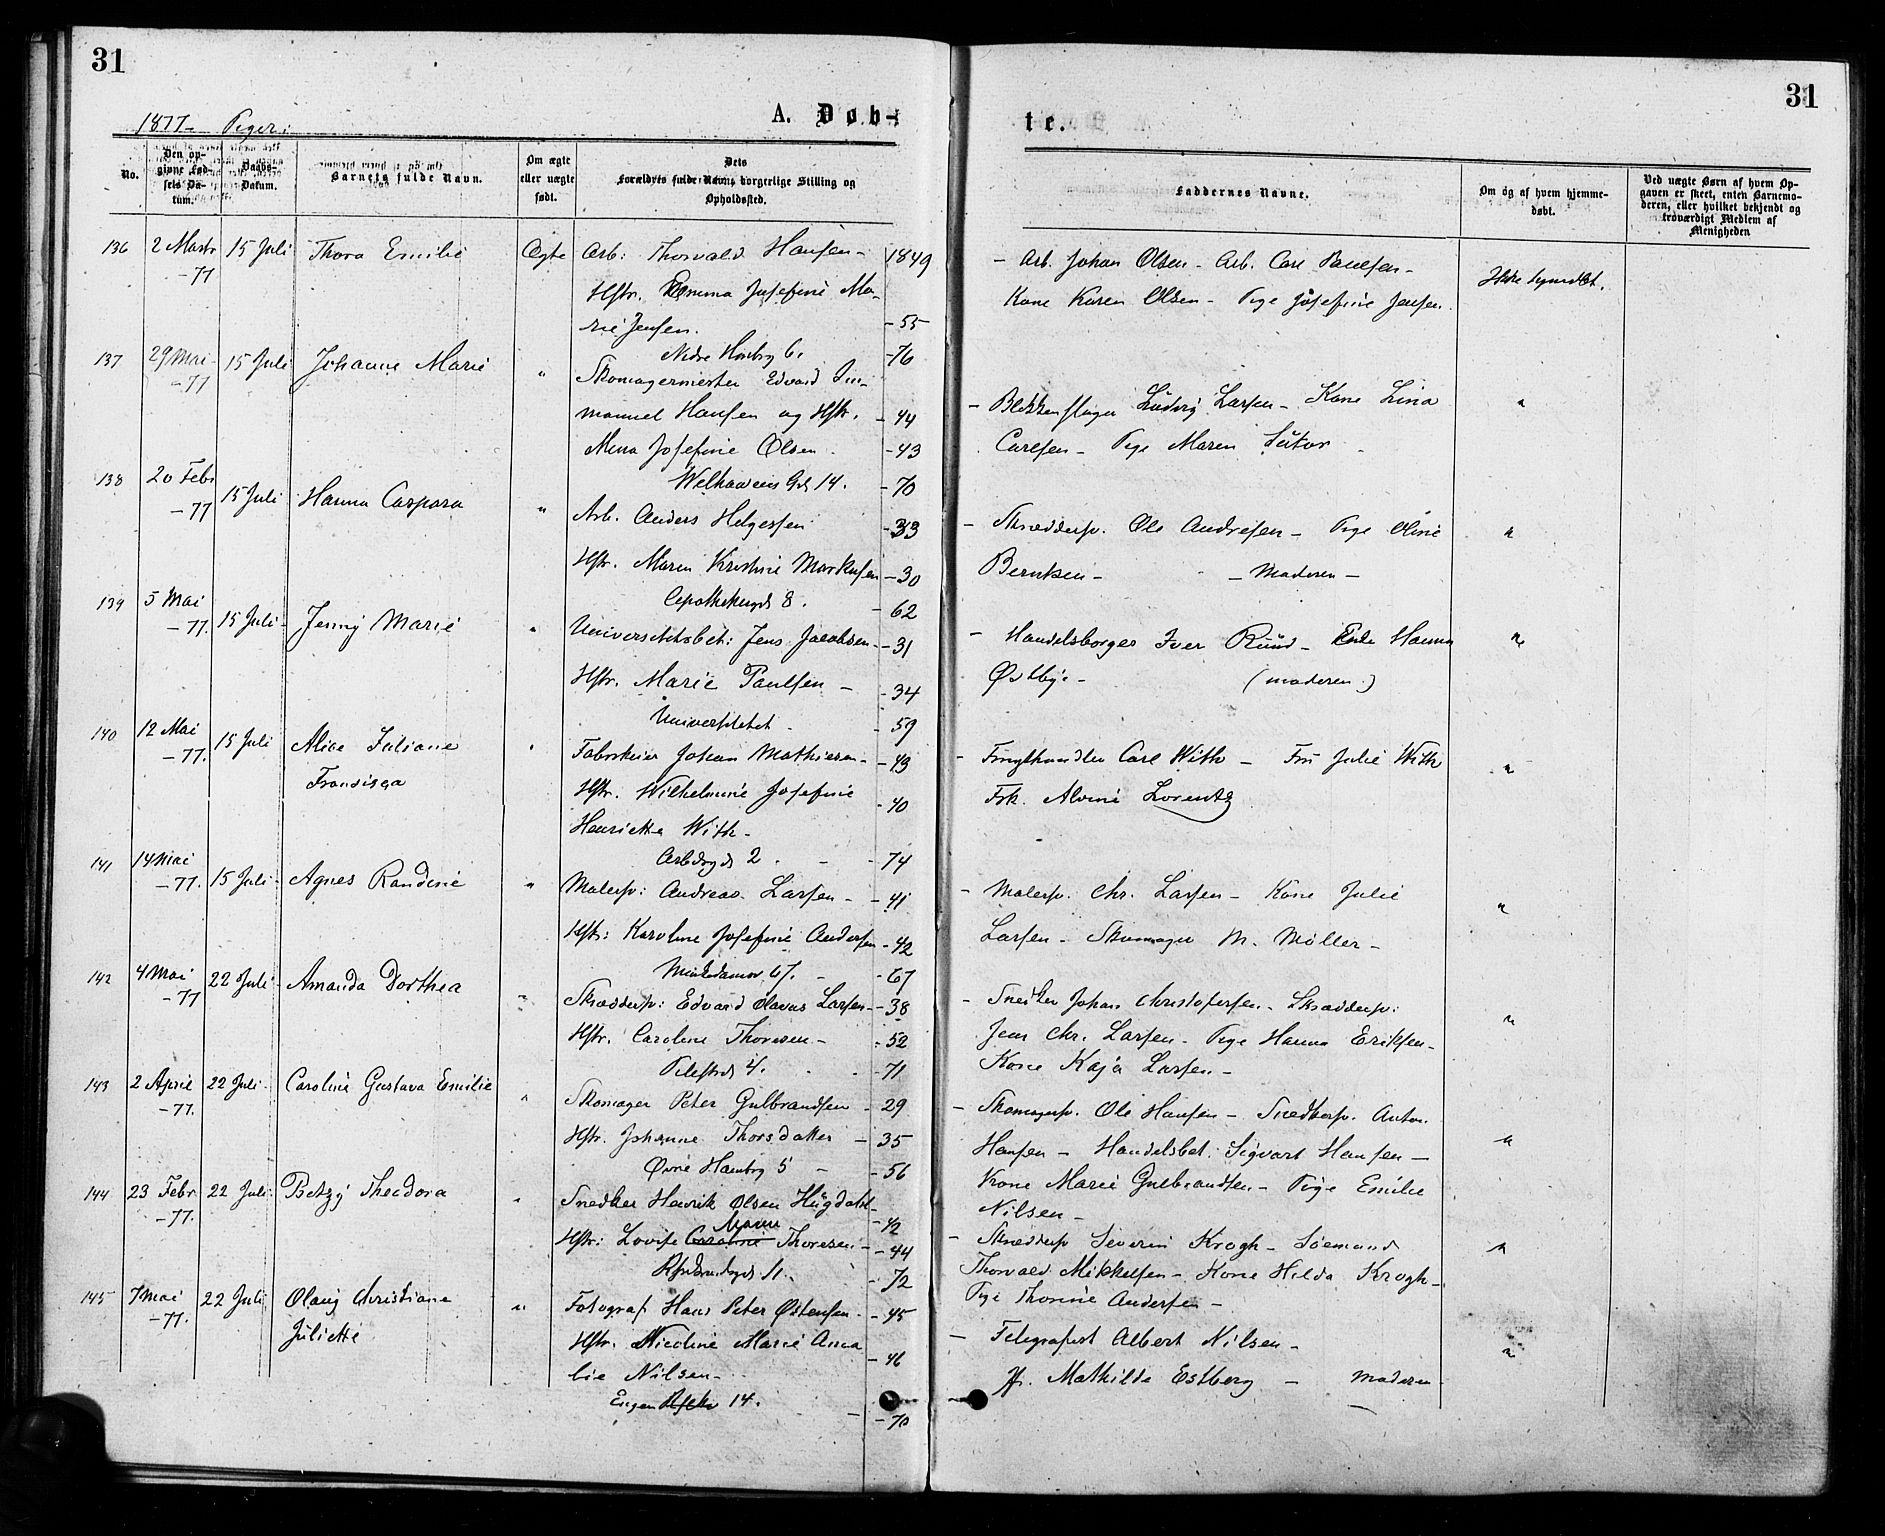 31
31
1877 - Piger:
A. Døb-
te.
No.
Den op-
givne Fød-
sels Da-
tum.
Daabs-
Datum.
Barnets fulde Navn.
Om ægte
eller uægte
født.
Dets
Forældres fulde Navn, borgerlige Stilling og
Opholdssted.
Faddernes Navne.
Om og af hvem hjemme-
døbt.
Ved uægte Børn af hvem Op-
gaven er skeet, enten Barnemo-
deren, eller hvilket bekjendt og
troværdigt Medlem af
Menigheden
136 2 Marts 15 Juli Thora Emilie Ægte Arb: Thorvald Hansen - 1849
- 77
Hstr. Emma Josefine Ma-
rie Jensen. - 55
Nedre Hambg 6. - 76
- Arb. Johan Olsen - Arb. Carl Paulsen -
Kone Karen Olsen - Pige Josefine Jensen.
Ikke hjemdbt.
137 29 Mai 15 Juli Johanne Marie "
- 77
Skomagermester Edvard Im-
manuel Hansen og Hstr. - 44
Mina Josefine Olsen. - 43
Welhavens Gd 14. - 70
- Blikkenslager Ludvig Larsen - Kone Lina "
Carlsen - Pige Maren Sutor -
138 20 Febr 15 Juli Hanna Caspara "
- 77
Arb. Anders Helgesen - 33
Hstr. Maren Kristine Markusen - 30
Apothekergd 8. - 62
- Skræddersv. Ole Andresen - Pige Oline "
Berntsen - - Moderen -
139 5 Mai 15 Juli - Jenny Marie "
- 77.
Universitetsbet: Jens Jacobsen - - 31
Hstr. Marie Paulsen - - 34
Universitetet - - 59
- Handelsborger Iver Ruud - Enke Hanna "
Østbye - (moderen)
140 12 Mai 15 Juli Alice Juliane "
- 77.
Francisca
Fabrikeier Johan Mathiesen - - 43
Hstr. Wilhelmine Josefine - 40
Henriette With -
Arbdsgd 2. - - 74
- Frugthandler Carl With - Fru Julie With "
Frk. Alvine Lorentz
141 14 Mai 15 Juli - Agnes Randine "
- 77.
Malersv: Andreas Larsen - - 41
Hstr: Karoline Josefine Andersen - 42
Munkedamsv 67. - - 67
- Malersv. Chr. Larsen - Kone Julie "
Larsen - Skomager M. Møller -
142 4 Mai 22 Juli - Amanda Dorthea "
- 77
Skræddersv: Edvard Olavus Larsen - 38
Hstr. Caroline Thoresen - - 52
Pilestrd 4. - 71
- Snedker Johan Christofersen - Skræddersv: "
Jens Chr. Larsen - Pige Hanna Eriksen -
Kone Kaja Larsen -
143 2 April 22 Juli - Caroline Gustava Emilie "
- 77.
Skomager Peter Gulbrandsen - 29
Hstr. Johanne Thorsdatter - - 35
Øvre Hambg 5 - - 56
- Skomagersv. Ole Hansen - Snedkersv. Anton "
Hansen - Handelsbet. Sigvart Hansen -
Kone Marie Gulbrandsen - Pige Emilie
Nilsen -
144 23 Febr 22 Juli - Betzy Theodora "
- 77.
Snedker Henrik Olsen Hugdahl - 42
Hstr: Lovise Caroline Thoresen - - 44
- 72
- Skræddersv Severin Krogh - Søemand "
Thorvald Mikkelsen - Kone Hilda Krogh -
Pige Thorine Andersen -
145 7 Mai 22 Juli Olaug Christiane "
- 77.
Juliette
Fotograf Hans Peter Østensen - - 45
Hstr. Nicoline Marie Ama - 46
lie Nilsen -
Eugen 14. - - 70
- Telegrafist Albert Nilsen - "
Jf. Mathilde Estberg - Moderen -